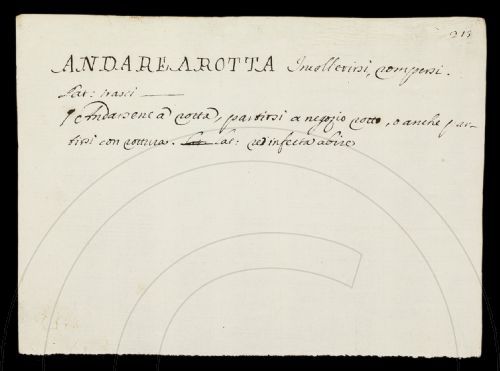 213
ANDARE A ROTTA Incollerirsi, rompersi.
Lat: irasci
Andarsene à rotta, partirsi a negozio rotto, o anche par-
tirsi con rottura. Lat: re infecta abire